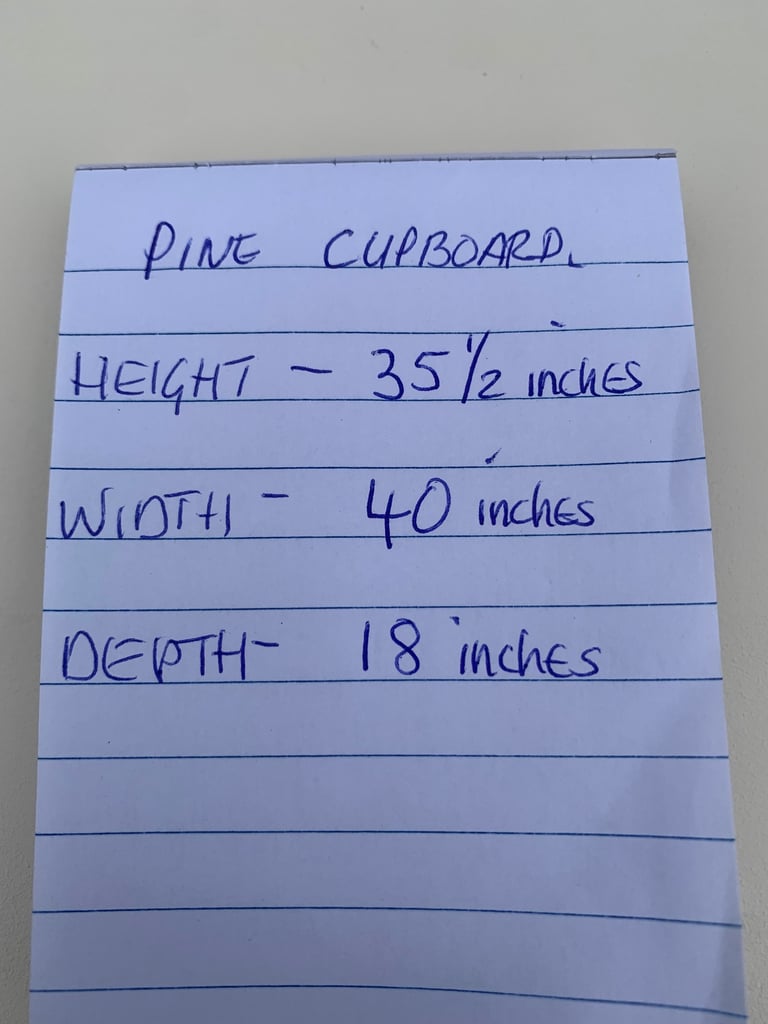 PINE CUPBOARD.
HEIGHT - 35 1/2 inches
WIDTH - 40 inches
DEPTH - 18 inches